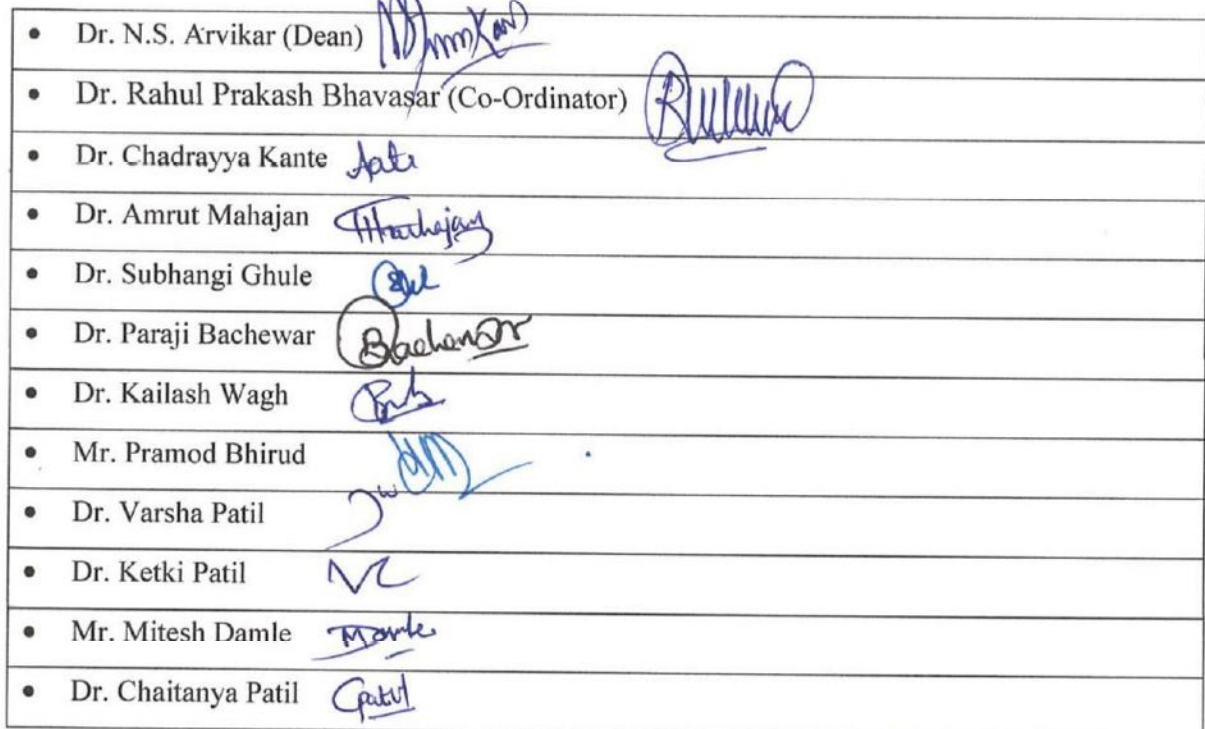 • Dr. N.S. Arvikar (Dean)
• Dr. Rahul Prakash Bhavasar (Co-Ordinator)
• Dr. Chadrayya Kante
• Dr. Amrut Mahajan
• Dr. Subhangi Ghule
• Dr. Paraji Bachewar
• Dr. Kailash Wagh
• Mr. Pramod Bhirud
• Dr. Varsha Patil
• Dr. Ketki Patil
• Mr. Mitesh Damle
• Dr. Chaitanya Patil